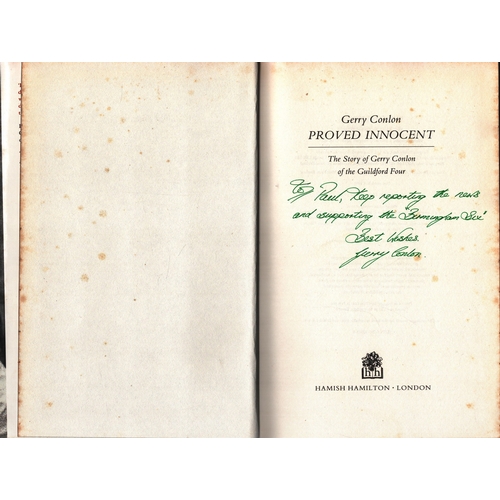 Gerry Conlon
PROVED INNOCENT
The Story of Gerry Conlon
of the Guildford Four
To Paul, Keep reporting the news
and supporting the Birmingham Six'
Best Wishes
Gerry Conlon.
hh
HAMISH HAMILTON · LONDON